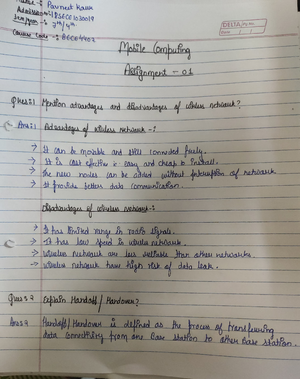 Name :- Pavneet Kaur
Semester :- 7th/4th
Course Code :- BCCE4402
DELTA
Mobile Computing
Assignment - 01
Ques:1 Mention advantages and disadvantages of wireless network?
Ans:1 Advantages of wireless network -:
→ It can be movable and still connected freely.
→ It is cost effective & easy and cheap to install.
→ The new nodes can be added without interruption of network
→ It provide better data communication.
Disadvantages of wireless Network -:
→ It has limited range in radio signals.
→ It has low speed in wireless network.
→ wireless network are less reliable than other networks.
→ wireless network have high risk of data leak.
Ques 2 Explain Handoff / Handover?
Ans 2 Handoff / Handover is defined as the process of transferring
data connectivity from one Base station to other Base station.